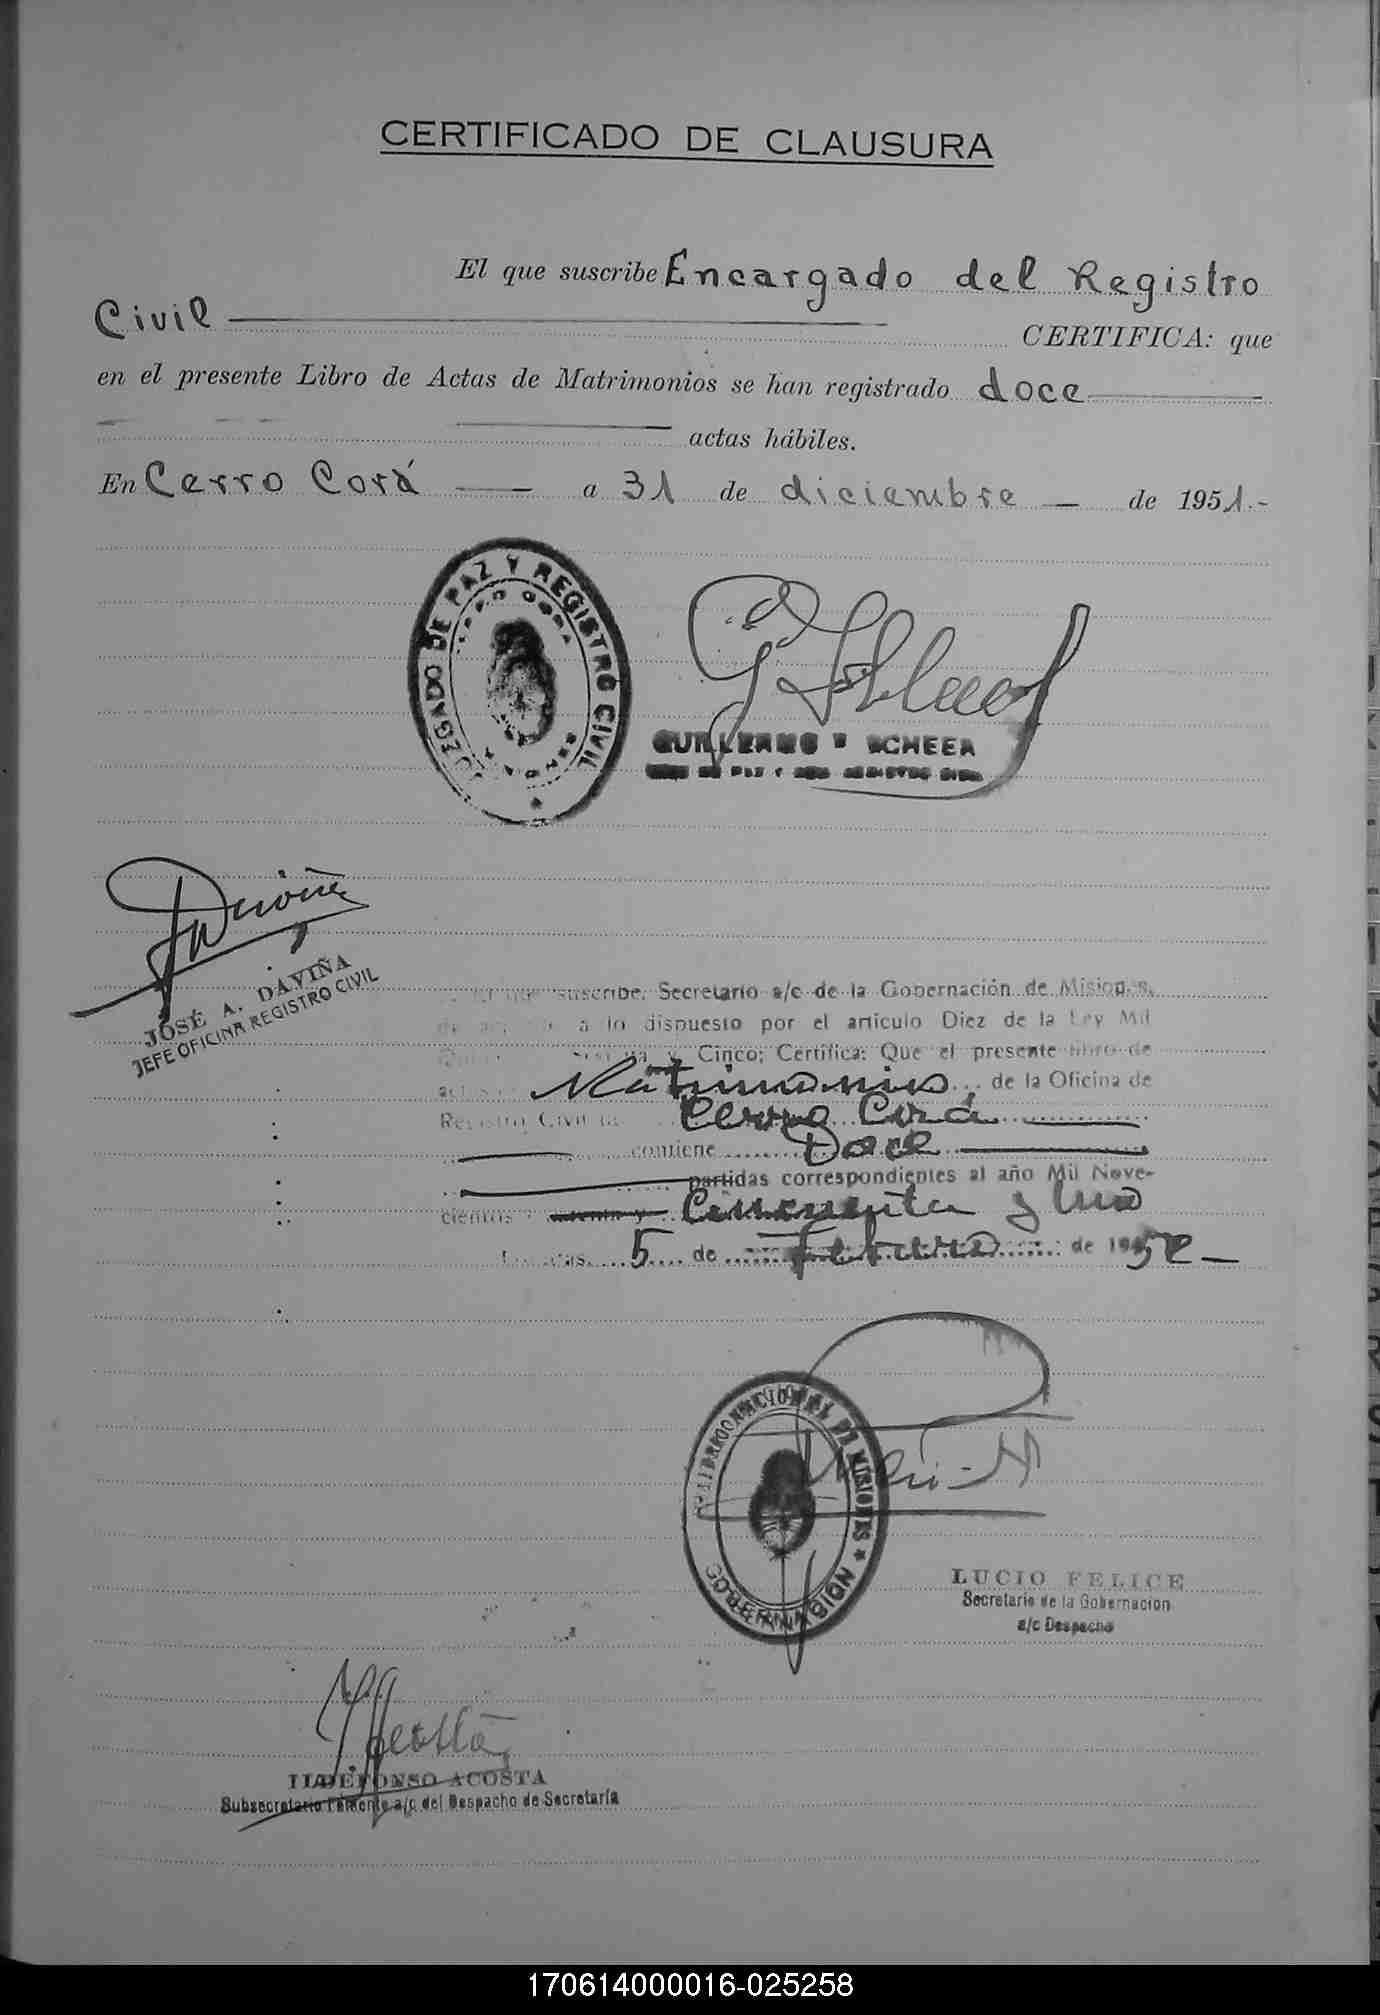 CERTIFICADO DE CLAUSURA
El que suscribe Encargado del Registro
Civil CERTIFICA: que
en el presente Libro de Actas de Matrimonios se han registrado doce
actas hábiles.
En Cerro Corá a 31 de diciembre de 1951.-
JUZGADO DE PAZ Y REGISTRO CIVIL
CERRO CORA
GUILLERMO SCHEER
DE PAZ Y REGISTRO CIVIL
JOSÉ A. DAVIÑA
JEFE OFICINA REGISTRO CIVIL
El que suscribe, Secretario a/c de la Gobernación de Misiones,
a lo dispuesto por el artículo Diez de la Ley Mil
y Cinco; Certifica: Que el presente libro de
actas Matrimonios de la Oficina de
Registro Civil Cerro Corá
contiene Doce
partidas correspondientes al año Mil Nove-
cientos Cincuenta y Uno
5 de Febrero de 1952
NACIONAL DE MISIONES
GOBERNACION
LUCIO FELICE
Secretario de la Gobernacion
a/c Despacho
ILDEFONSO ACOSTA
Subsecretario a/c del Despacho de Secretaría
170614000016-025258